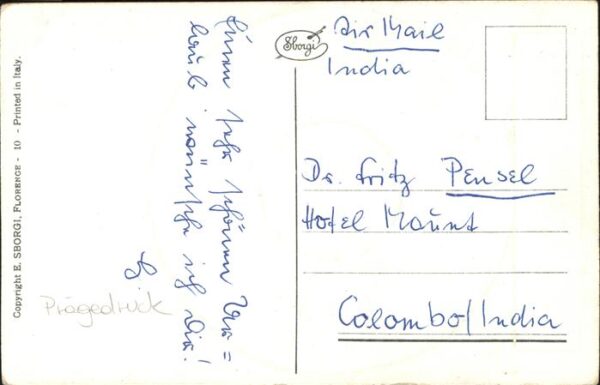 Copyright E. SBORGI, FLORENCE - 10 - Printed in Italy.
Einen sehr schönen Ur=
laub wünsche ich Dir!
G.
Prägedruck
Sborgi
Air Mail
India
Dr. Fritz Pensel
Hotel Mount
Colombo/India